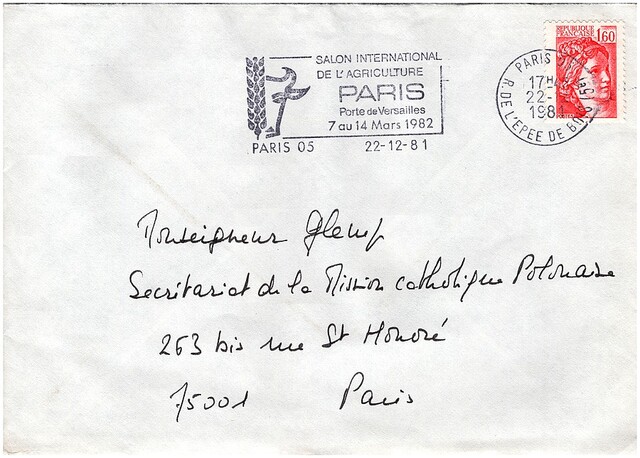 SALON INTERNATIONAL
DE L'AGRICULTURE
PARIS
Porte de Versailles
7 au 14 Mars 1982
PARIS 05 22-12-81
REPUBLIQUE
FRANÇAISE
1,60
PARIS
17H
22-
1981
R. DE L'EPEE DE BOIS
Monseigneur Glemp
Secrétariat de la Mission catholique Polonaise
263 bis rue St Honoré
75001 Paris